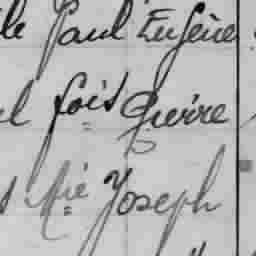 le Paul Eugène
fois Pierre
Mie Joseph